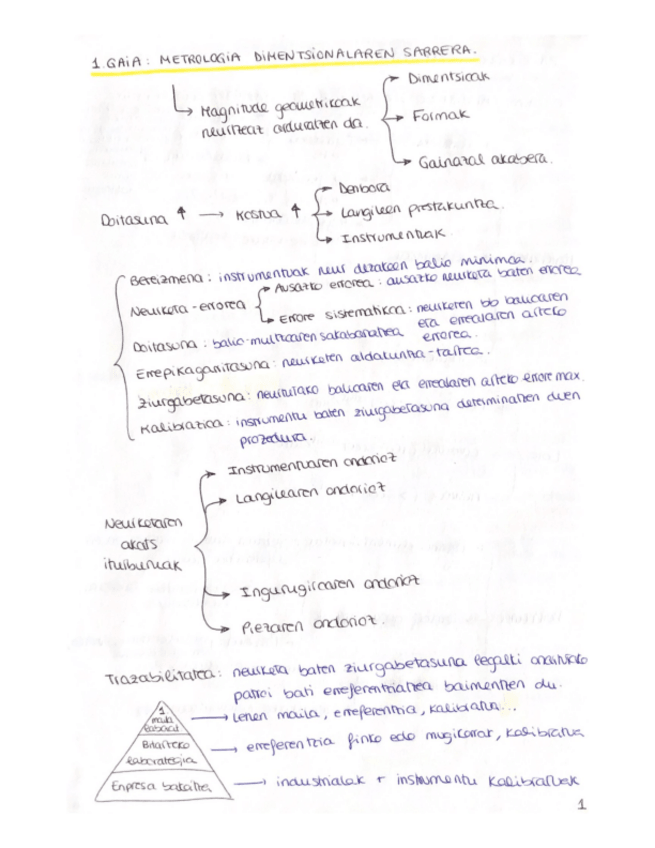 1. GAIA: METROLOGIA DIMENTSIONALAREN SARRERA.
Magnitude geometrikoak
neurtzeaz arduratzen da.
Dimentsioak
Formak
Gainazal akabera.
Doitasuna ↑ → Kostua ↑
Denbora
Langileen prestakuntza.
Instrumentuak.
Bereizmena: instrumentuak neur dezakeen balio minimoa
Neurketa-errorea
Ausazko errorea: ausazko neurketa baten errorea
Errore sistematikoa: neurketen bb balioaren
eta errealaren arteko
errorea.
Doitasuna: balio-multzoaren sakabanatzea
Errepikagarritasuna: neurketen aldakuntza-tartea.
Ziurgabetasuna: neurtutako balioaren eta errealaren arteko errore max.
Kalibrazioa: instrumentu baten ziurgabetasuna determinatzen duen
prozedura.
Neurketaren
akats
iturburuak
Instrumentuaren ondorioz
Langilearen ondorioz
Ingurugiroaren ondorioz
Piezaren ondorioz.
Trazabilitatea: neurketa baten ziurgabetasuna
patroi bati erreferentziatzea baimentzen du.
1
maila
laborat
→ Lehen maila, erreferentzia, kalibratu...
Bitarteko
laborategia
→ erreferentzia finko edo mugikorrak, kalibratu
Enpresa bakoitza
→ industrialak + instrumentu kalibratuak
1